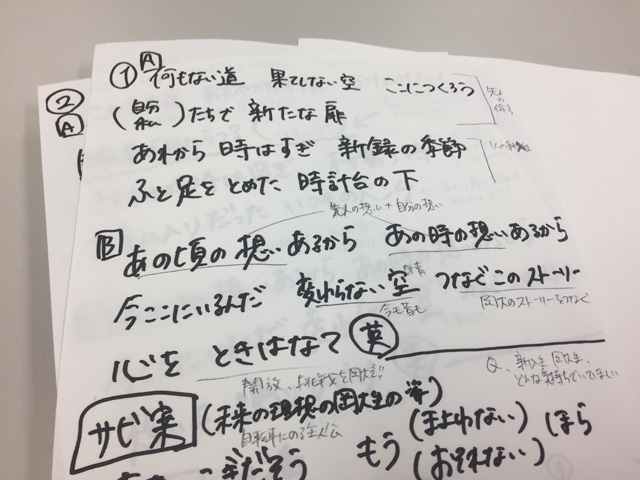 ① A 何もない道 果てしない空 ここにつくろう
先人の
(自分 私)たちで 新たな扉
あれから 時はすぎ 新録の季節
ふと足を とめた 時計台の下
先人の想い+自分の想い
B あの頃の想いあるから あの時の想いあるから
今ここにいるんだ 変わらない空 つなぐこのストーリー
今も昔も 岡大のストーリーをつなぐ
心を ときはなて 英
開放、挑戦を岡大で!!
Q、新入生 岡大生、
サビ案 (未来の理想の岡大生の姿)
もう (まよわない) ほら
(おそれない)
②
A